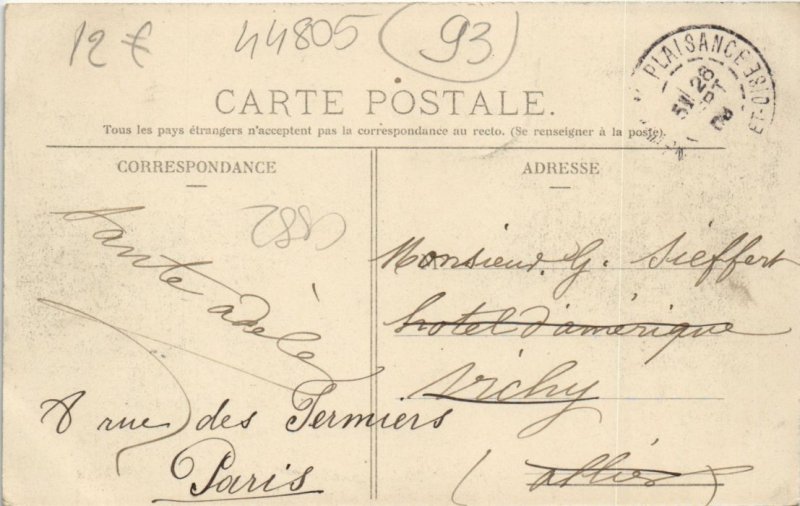 12 €
44805
93
PLAISANCE
ET-OISE
CARTE POSTALE.
Tous les pays étrangers n'acceptent pas la correspondance au recto. (Se renseigner à la poste).
CORRESPONDANCE
ADRESSE
tante adèle
Monsieur G. Sieffert
hotel d'amérique
Vichy
(allier)
8 rue des Fermiers
Paris